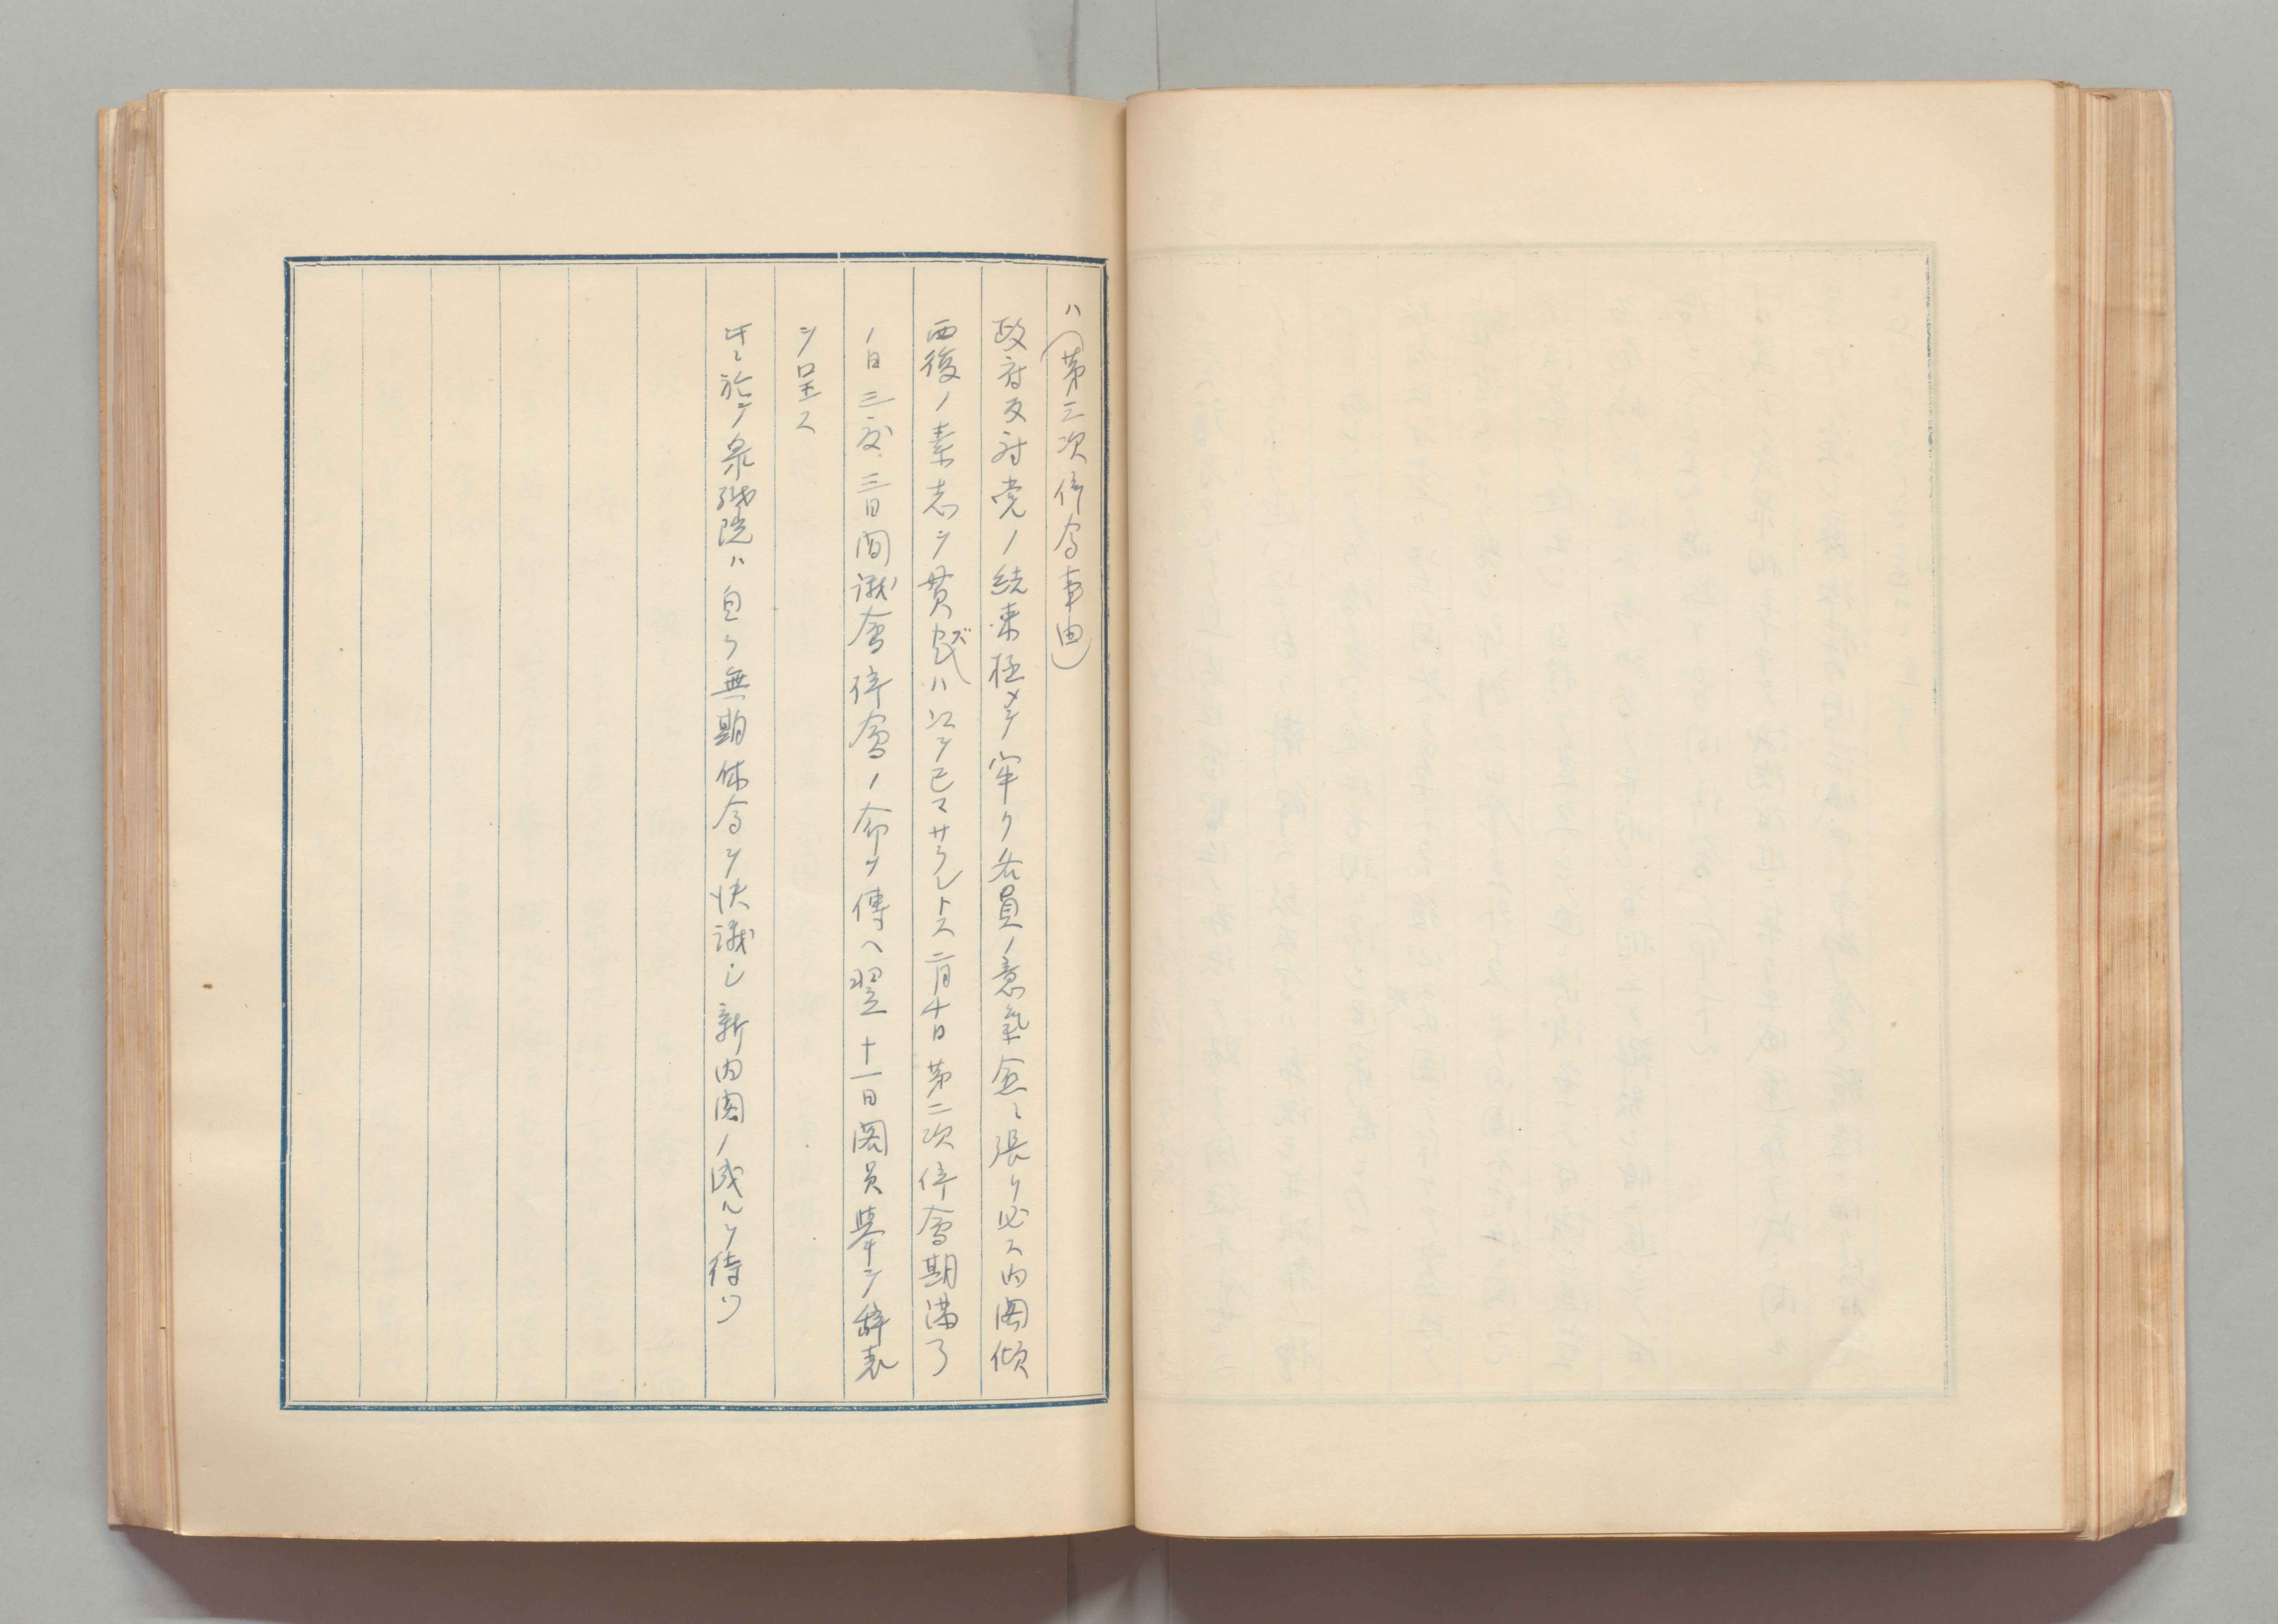 ハ(第三次停会事由)
政府反対党ノ結束極メテ牢ク各員ノ意氣愈々張リ必ス内閣傾
覆ノ素志ヲ貫カズハ ヲ已マサラントス二月十日第二次停會期満了
ノ日三度三日間議會停會ノ命ヲ傳ヘ翌十一日閣員挙ッテ辞表
ヲ呈ス
是ニ於テ衆議院ハ自ラ無期休会ヲ決議シ新内閣ノ成ルヲ待ツ